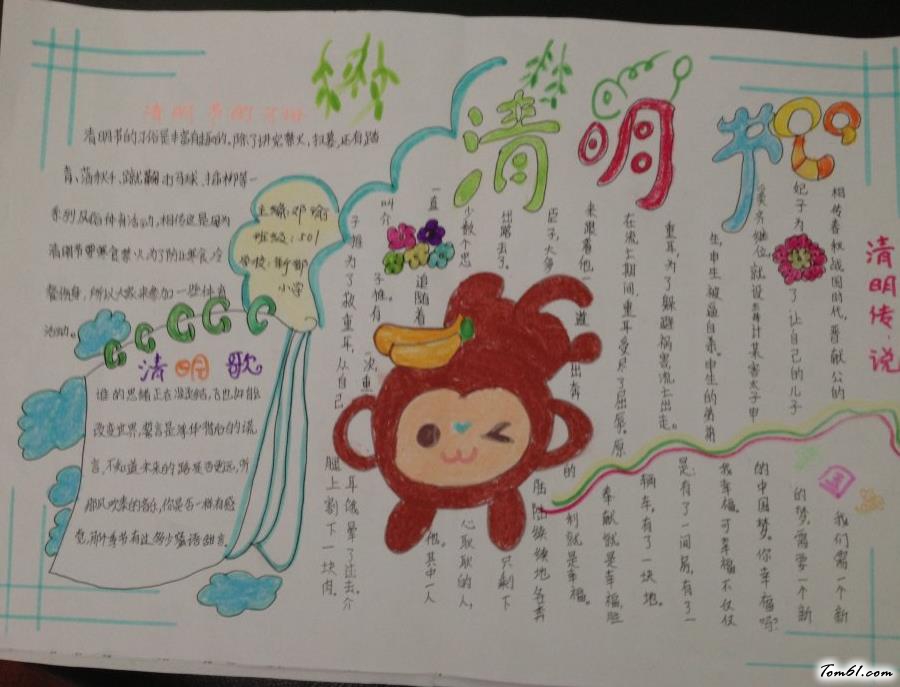 清明节
清明节的习俗
清明节的习俗是丰富有趣的。除了讲究禁火、扫墓,还有踏
青、荡秋千、蹴鞠、打马球、插柳等一
系列风俗体育活动。相传这是因为
清明节要寒食禁火,为了防止寒食冷
餐伤身,所以大家来参加一些体育
活动。
主编:邓瑜
班级:501
学校:新都
小学
清明歌
谁的思绪正在凝结,飞也好能
改变世界,誓言是年华背后的谎
言,不知道未来的路是否更远,听
那风吹奏的音乐,你是否一样有感
觉,那个季节有过多少蜜语甜言。
清明传说
相传春秋战国时代,晋献公的
妃子为了让自己的儿子
奚齐继位,就设毒计谋害太子申
生,申生被逼自杀。申生的弟弟
重耳,为了躲避祸害,流亡出走。
在流亡期间,重耳受尽了屈辱。原
来跟着他一道出奔的
臣子,大多陆陆续续地各奔
出路去了。只剩下
少数个忠心耿耿的人,
一直追随着他。其中一人
叫介子推。有一次,重耳饿晕了过去。介
子推为了救重耳,从自己腿上割下一块肉,
我们需一个新
的梦,需要一个新
的中国梦。你幸福吗?
我幸福。可幸福不仅仅
是:有了一间房,有了一
辆车,有了一块地。
奉献就是幸福,胜
利就是幸福。
Tom61.com